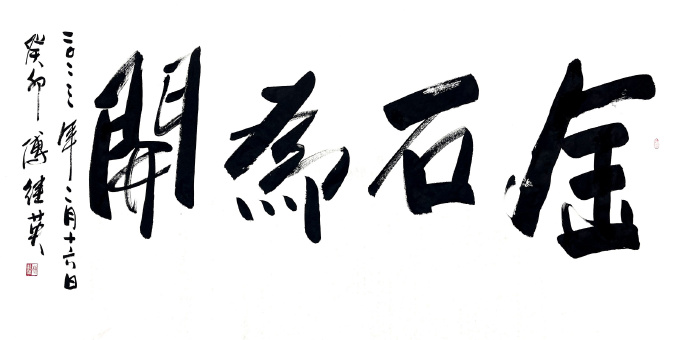 金石為開
二〇二三年二月十六日
癸卯 傅继英